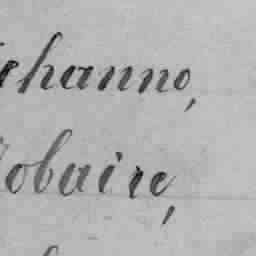 ehanno,
obaire,